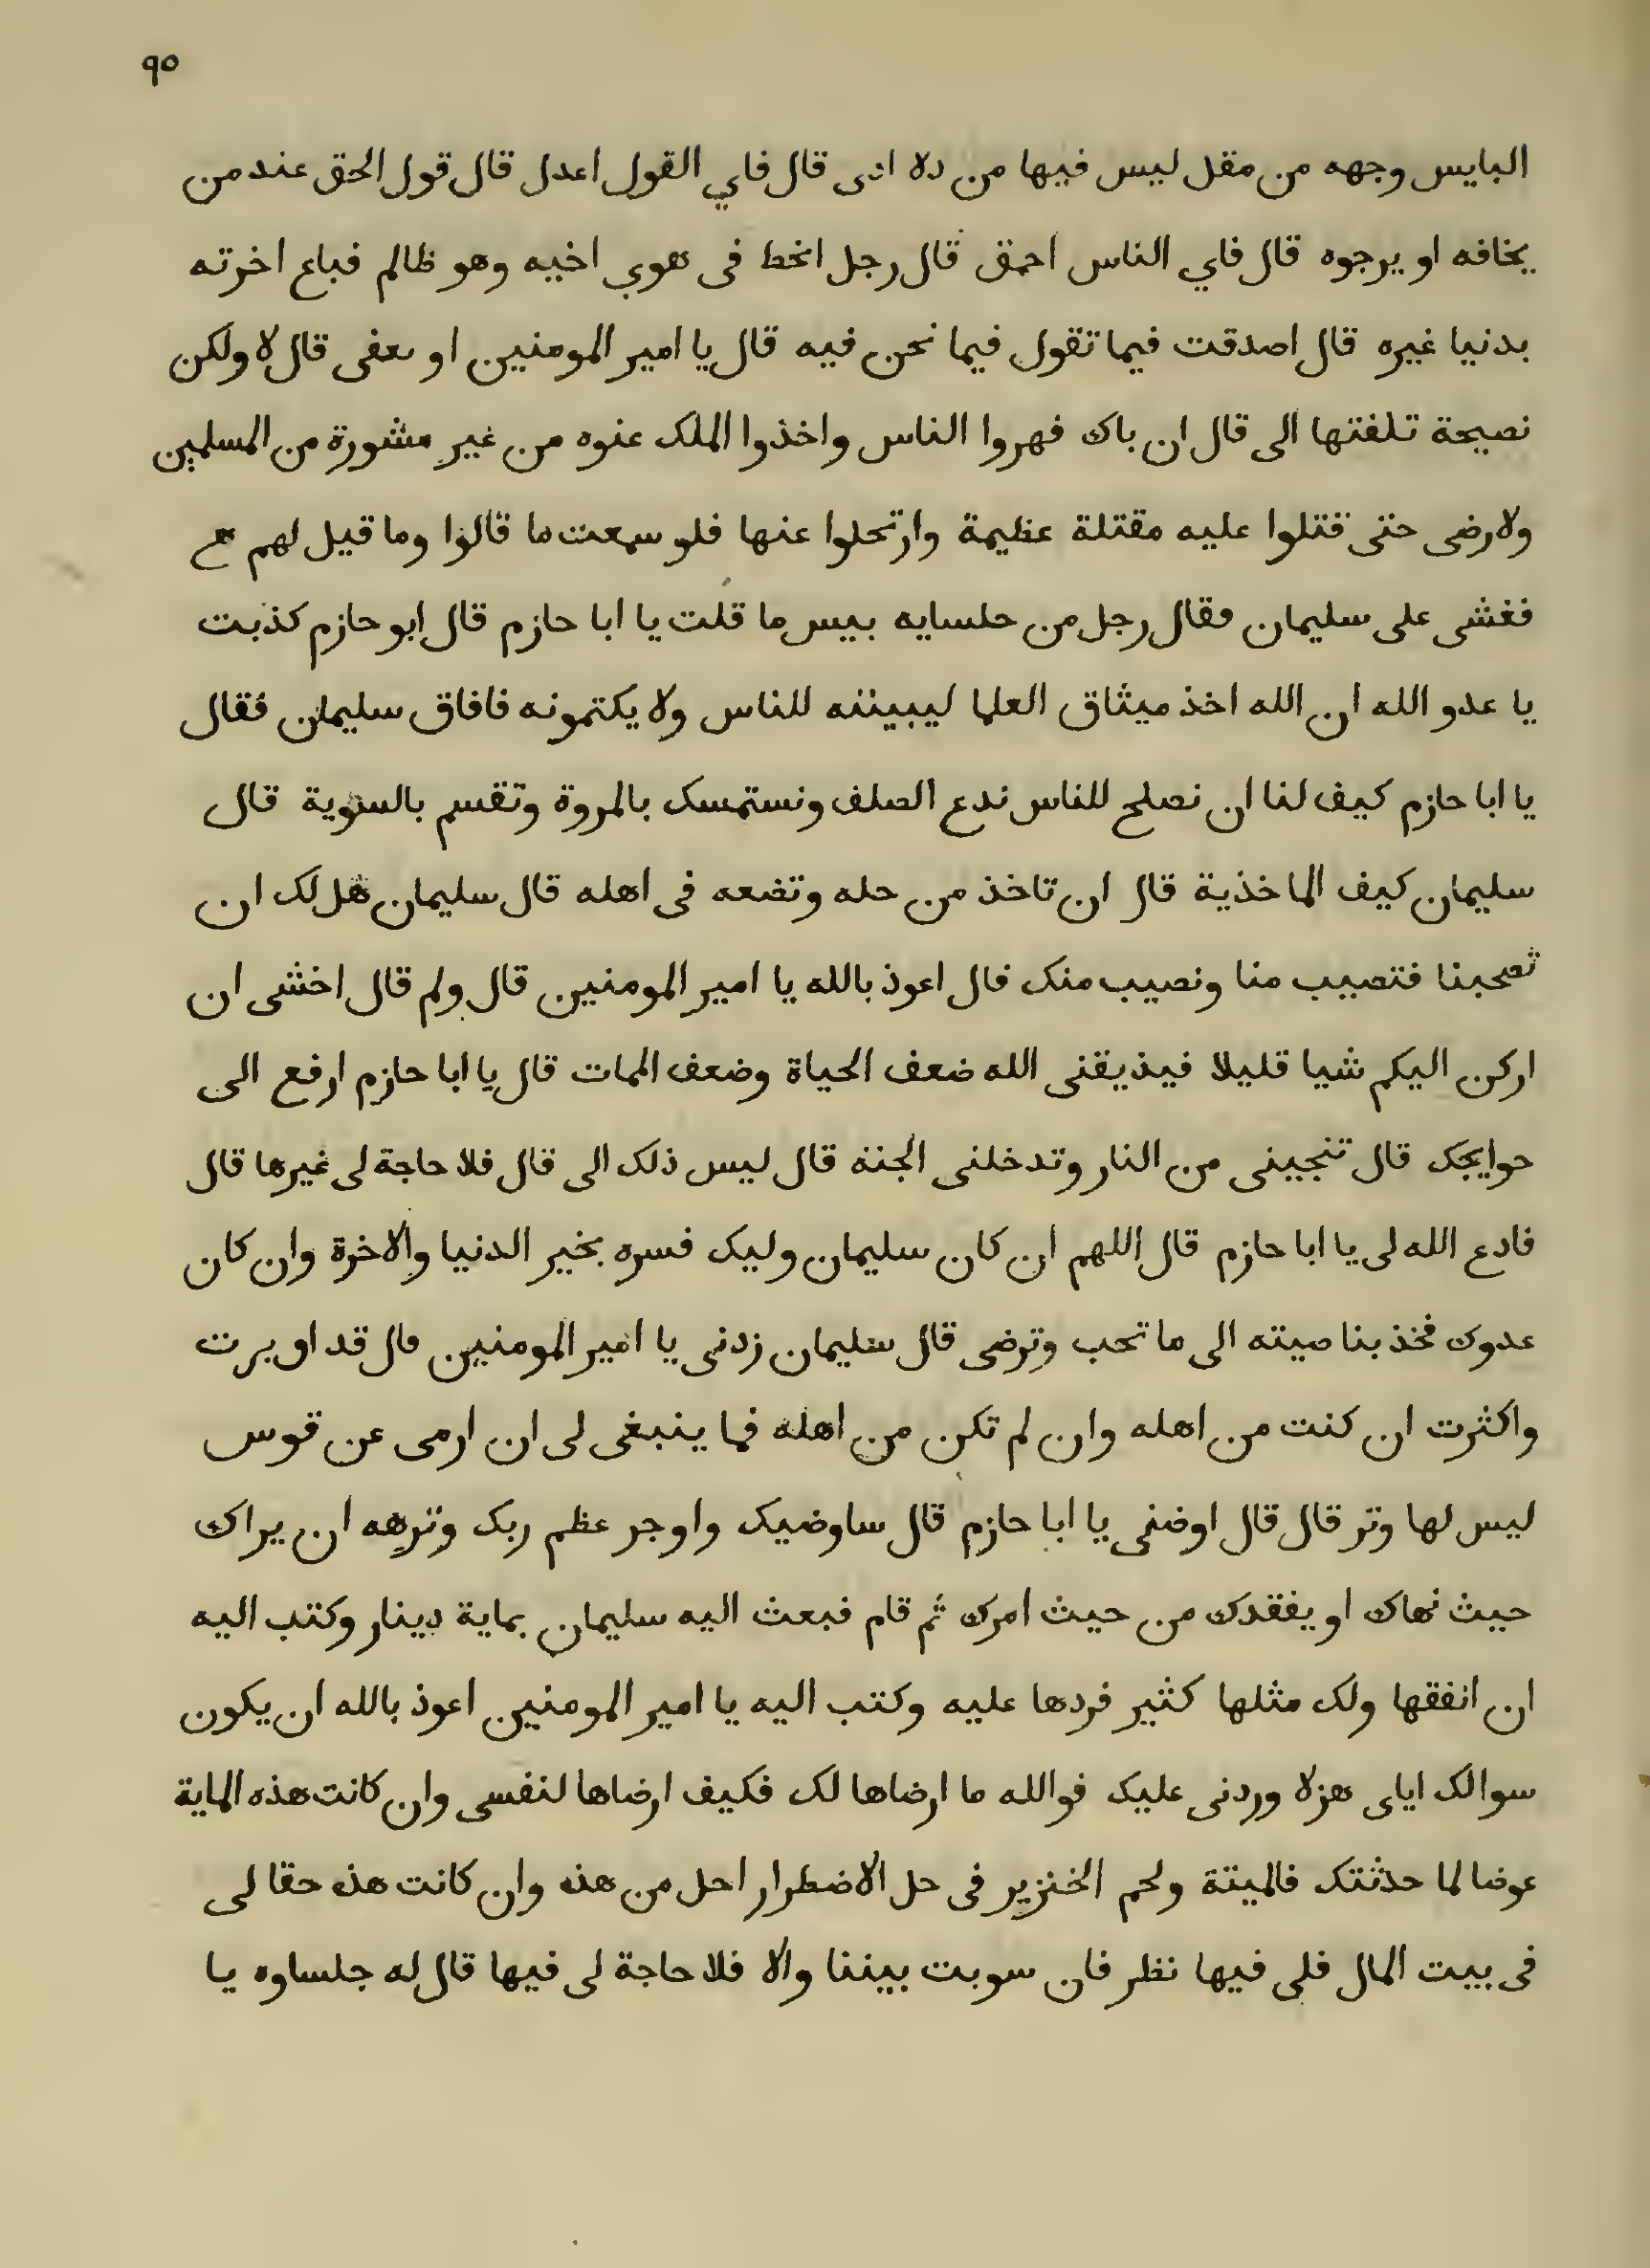 ٩٥
البايس وجهه من مقل ليس فيها من ولا اذى قال فاي القول اعدل قال قول الحق عند من
يخافه او يرجوه قال فاي الناس احمق قال رجل انخط فى هوي اخيه وهو ظالم فباع اخرته
بدنيا غيره قال اصدقت فيما تقول فيما نحن فيه قال يا امير المومنين او تعفى قال لا ولكن
نصيحة تلفتها الى قال ان باك فهروا الناس واخذوا الملك عنوه من غير مشورة من المسلمين
ولا رضى حتى قتلوا عليه مقتلة عظيمة وارتحلوا عنها فلو سمعت ما قالوا وما قيل لهم
فغشى على سليمان فقال رجل من حلسايه بيس ما قلت يا ابا حازم قال ابو حازم كذبت
يا عدو الله ان الله اخذ ميثاق العلما ليبيننه للناس ولا يكتمونه فافاق سليمان فقال
يا ابا حازم كيف لنا ان نصلح للناس ندع الصلف ونستمسك بالمروة وتقسم بالسوية قال
سليمان كيف الماخذية قال ان تاخذ من حله وتضعه فى اهله قال سليمان هل لك ان
تصحبنا فتصيب منا ونصيب منك فال اعوذ بالله يا امير المومنين قال ولم قال اخشى ان
اركن اليكم شيا قليلا فيذيقنى الله ضعف الحياة وضعف الممات قال يا ابا حازم ارفع الى
حوايجك قال تنجينى من النار وتدخلنى الجنة قال ليس ذلك الى قال فلا حاجة لى غيرها قال
فادع الله لى يا ابا حازم قال اللهم ان كان سليمان وليك فسره بخير الدنيا والاخرة وان كان
عدوك فخذ بناصيته الى ما تحب وترضى قال سليمان زدنى يا امير المومنين قال قد اوبرت
واكثرت ان كنت من اهله وان لم تكن من اهله فما ينبغى لى ان ارمى عن قوس
ليس لها وتر قال قال اوضنى يا ابا حازم قال ساوضيك واوجر عظم ربك وترهه ان يراك
حيث نهاك او يفقدك من حيث امرك ثم قام فبعث اليه سليمان بماية دينار وكتب اليه
ان انفقها ولك مثلها كثير فردها عليه وكتب اليه يا امير المومنين اعوذ بالله ان يكون
سوالك اياى هزلا وردنى عليك فوالله ما ارضاها لك فكيف ارضاها لنفسى وان كانت هذه الماية
عوضا لما حدثتك فالميتة ولحم الخنزير فى حل الاضطرار احل من هذه وان كانت هذه حقا لى
فى بيت المال فلى فيها نظر فان سوبت بيننا والا فلا حاجة لى فيها قال له جلساوه يا